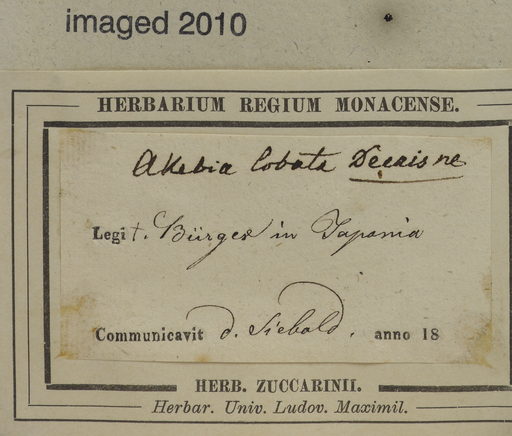 imaged 2010
HERBARIUM REGIUM MONACENSE.
Akebia lobata Decaisne
Legit. Bürger in Japonia
Communicavit d. Siebold. anno 18
HERB. ZUCCARINII.
Herbar. Univ. Ludov. Maximil.